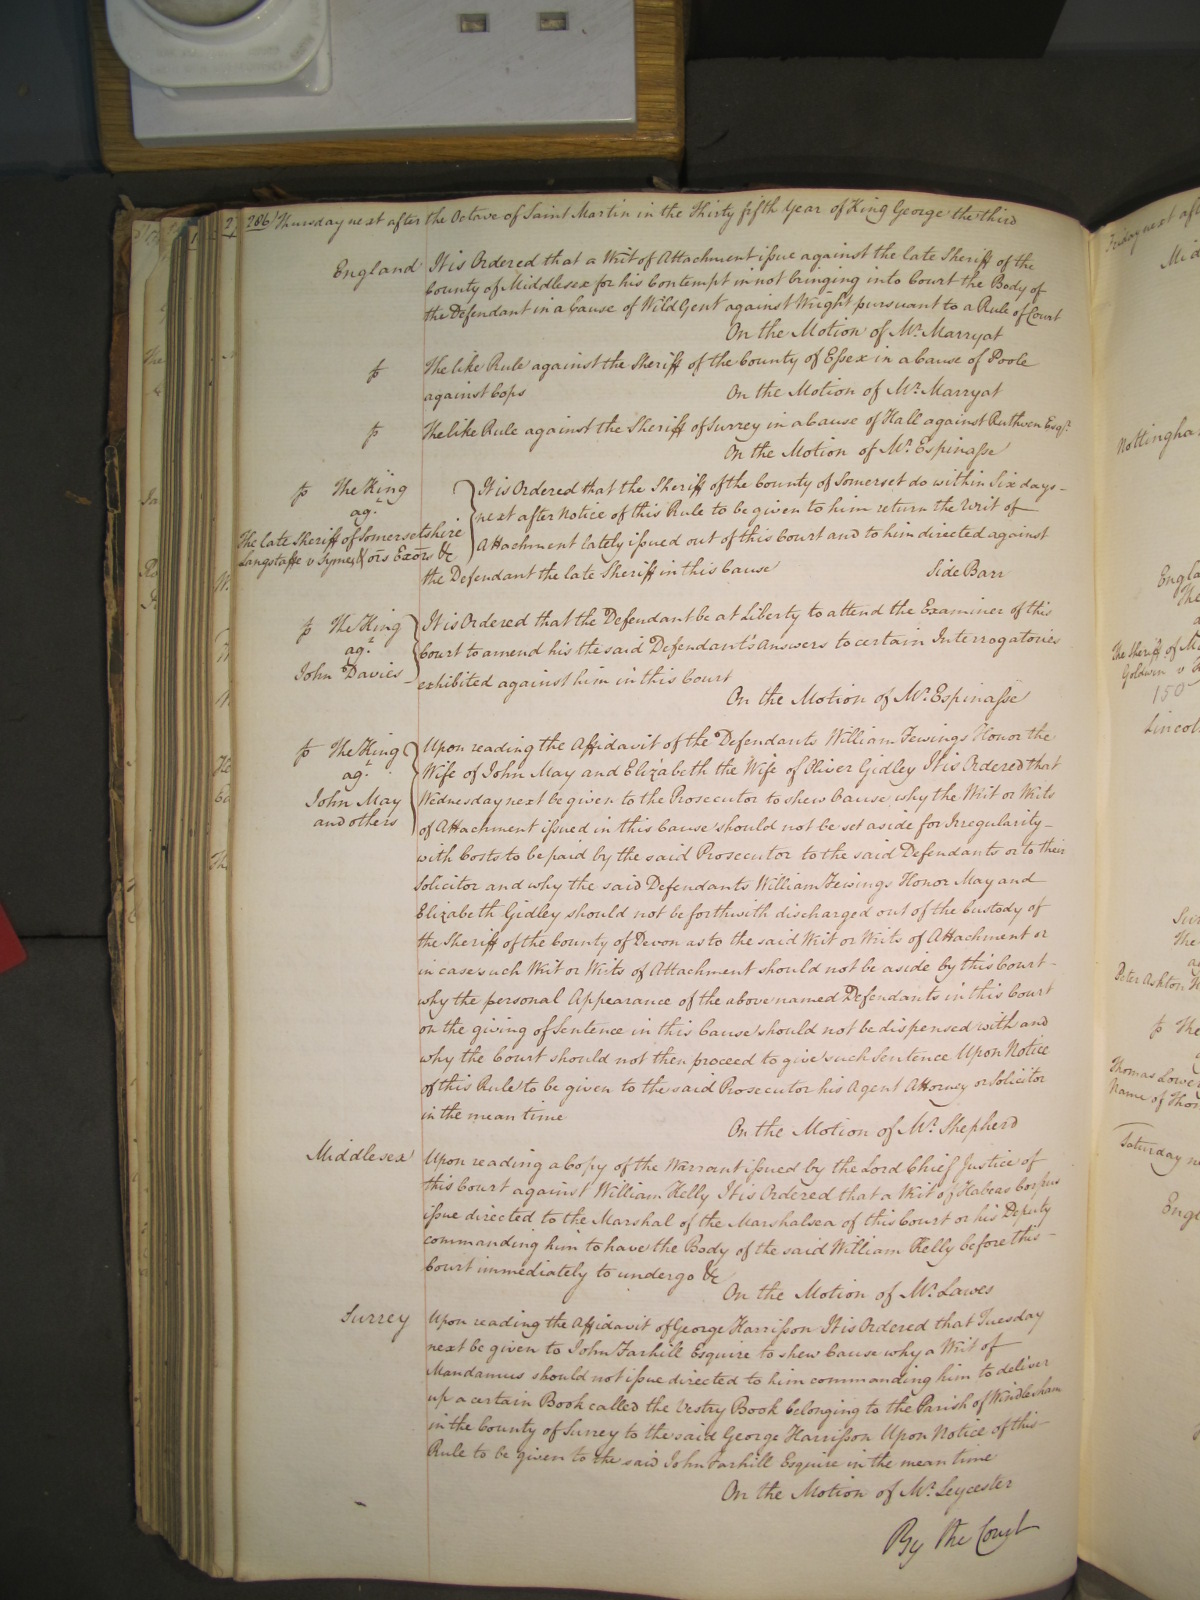 286 Thursday next after the Octave of Saint Martin in the Thirty fifth Year of King George the third
England It is Ordered that a Writ of Attachment issue against the late Sheriff of the
County of Middlesex for his Contempt in not bringing into Court the Body of
the Defendant in a Cause of Wild Gent against Wright pursuant to a Rule of Court
On the Motion of Mr. Marryat
The like Rule against the Sheriff of the County of Essex in a Cause of Poole
against Cops
On the Motion of Mr. Marryat
The like Rule against the Sheriff of Surrey in a Cause of Hall against Ruthven Esqr.
On the Motion of Mr. Espinasse
The King
agt.
The late Sheriff of Somersetshire
Langstaffe v Symes & ors Exors &c
It is Ordered that the Sheriff of the County of Somerset do within Six days
next after Notice of this Rule to be given to him return the Writ of
Attachment lately issued out of this Court and to him directed against
the Defendant the late Sheriff in this Cause
Side Barr
The King
agt.
John Davies
It is Ordered that the Defendant be at Liberty to attend the Examiner of this
Court to amend his the said Defendant's Answers to certain Interrogatories
exhibited against him in this Court
On the Motion of Mr. Espinasse
The King
agt.
John May
and others
Upon reading the Affidavit of the Defendants William Fewings Honor the
Wife of John May and Elizabeth the Wife of Oliver Gidley It is Ordered that
Wednesday next be given to the Prosecutor to shew Cause why the Writ or Writs
of Attachment issued in this Cause should not be set aside for Irregularity
with Costs to be paid by the said Prosecutor to the said Defendants or to their
Solicitor and why the said Defendants William Fewings Honor May and
Elizabeth Gidley should not be forthwith discharged out of the Custody of
the Sheriff of the County of Devon as to the said Writ or Writs of Attachment or
in case such Writ or Writs of Attachment should not be aside by this Court
why the personal Appearance of the above named Defendants in this Court
on the giving of Sentence in this Cause should not be dispensed with and
why the Court should not then proceed to give such Sentence Upon Notice
of this Rule to be given to the said Prosecutor his Agent Attorney or Solicitor
in the mean time
On the Motion of Mr. Shepherd
Middlesex Upon reading a Copy of the Warrant issued by the Lord Chief Justice of
this Court against William Kelly It is Ordered that a Writ of Habeas Corpus
issue directed to the Marshal of the Marshalsea of this Court or his Deputy
commanding him to have the Body of the said William Kelly before this
Court immediately to undergo &c
On the Motion of Mr. Lawes
Surrey Upon reading the Affidavit of George Harrisson It is Ordered that Tuesday
next be given to John Farhill Esquire to shew Cause why a Writ of
Mandamus should not issue directed to him commanding him to deliver
up a certain Book called the Vestry Book belonging to the Parish of Windlesham
in the County of Surrey to the said George Harrisson Upon Notice of this
Rule to be given to the said John Farhill Esquire in the mean time
On the Motion of Mr. Leycester
By the Court
Friday next
The Sheriff of
Goldwin v
150
Peter Ashton
Name of
Saturday